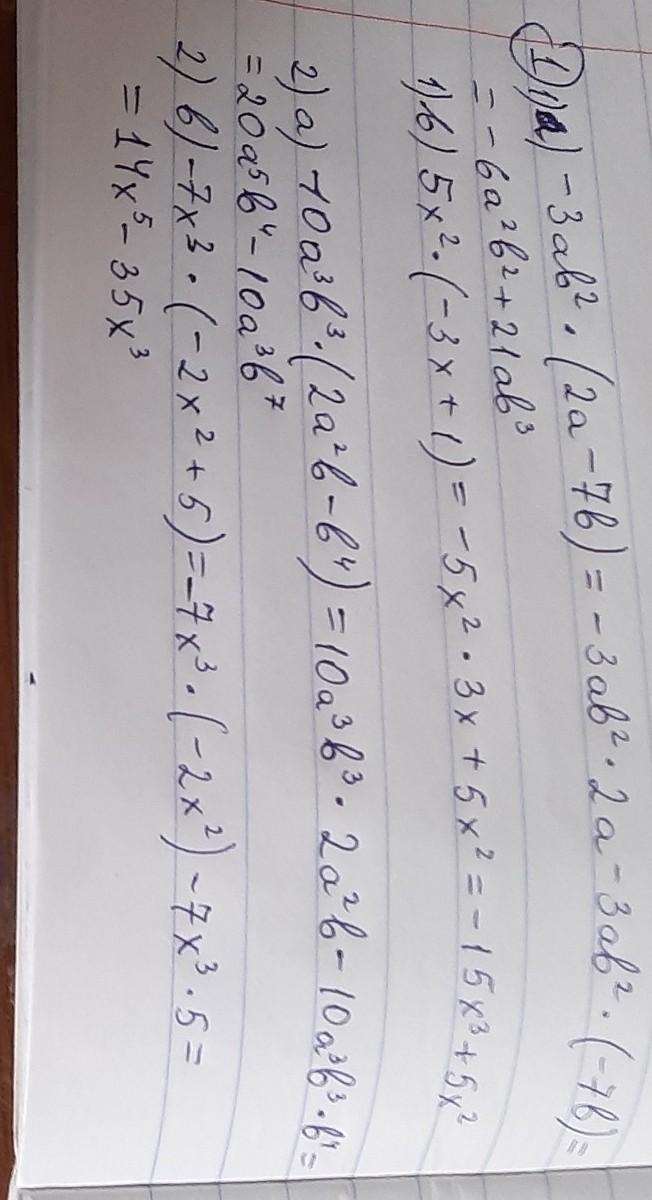 ① 1) а) -3ab² · (2a - 7b) = -3ab² · 2a - 3ab² · (-7b) =
= -6a²b² + 21ab³
1) в) 5x² · (-3x + 1) = -5x² · 3x + 5x² = -15x³ + 5x²
2) а) 10a³b³ · (2a²b - b⁴) = 10a³b³ · 2a²b - 10a³b³ · b⁴ =
= 20a⁵b⁴ - 10a³b⁷
2) в) -7x³ · (-2x² + 5) = -7x³ · (-2x²) - 7x³ · 5 =
= 14x⁵ - 35x³